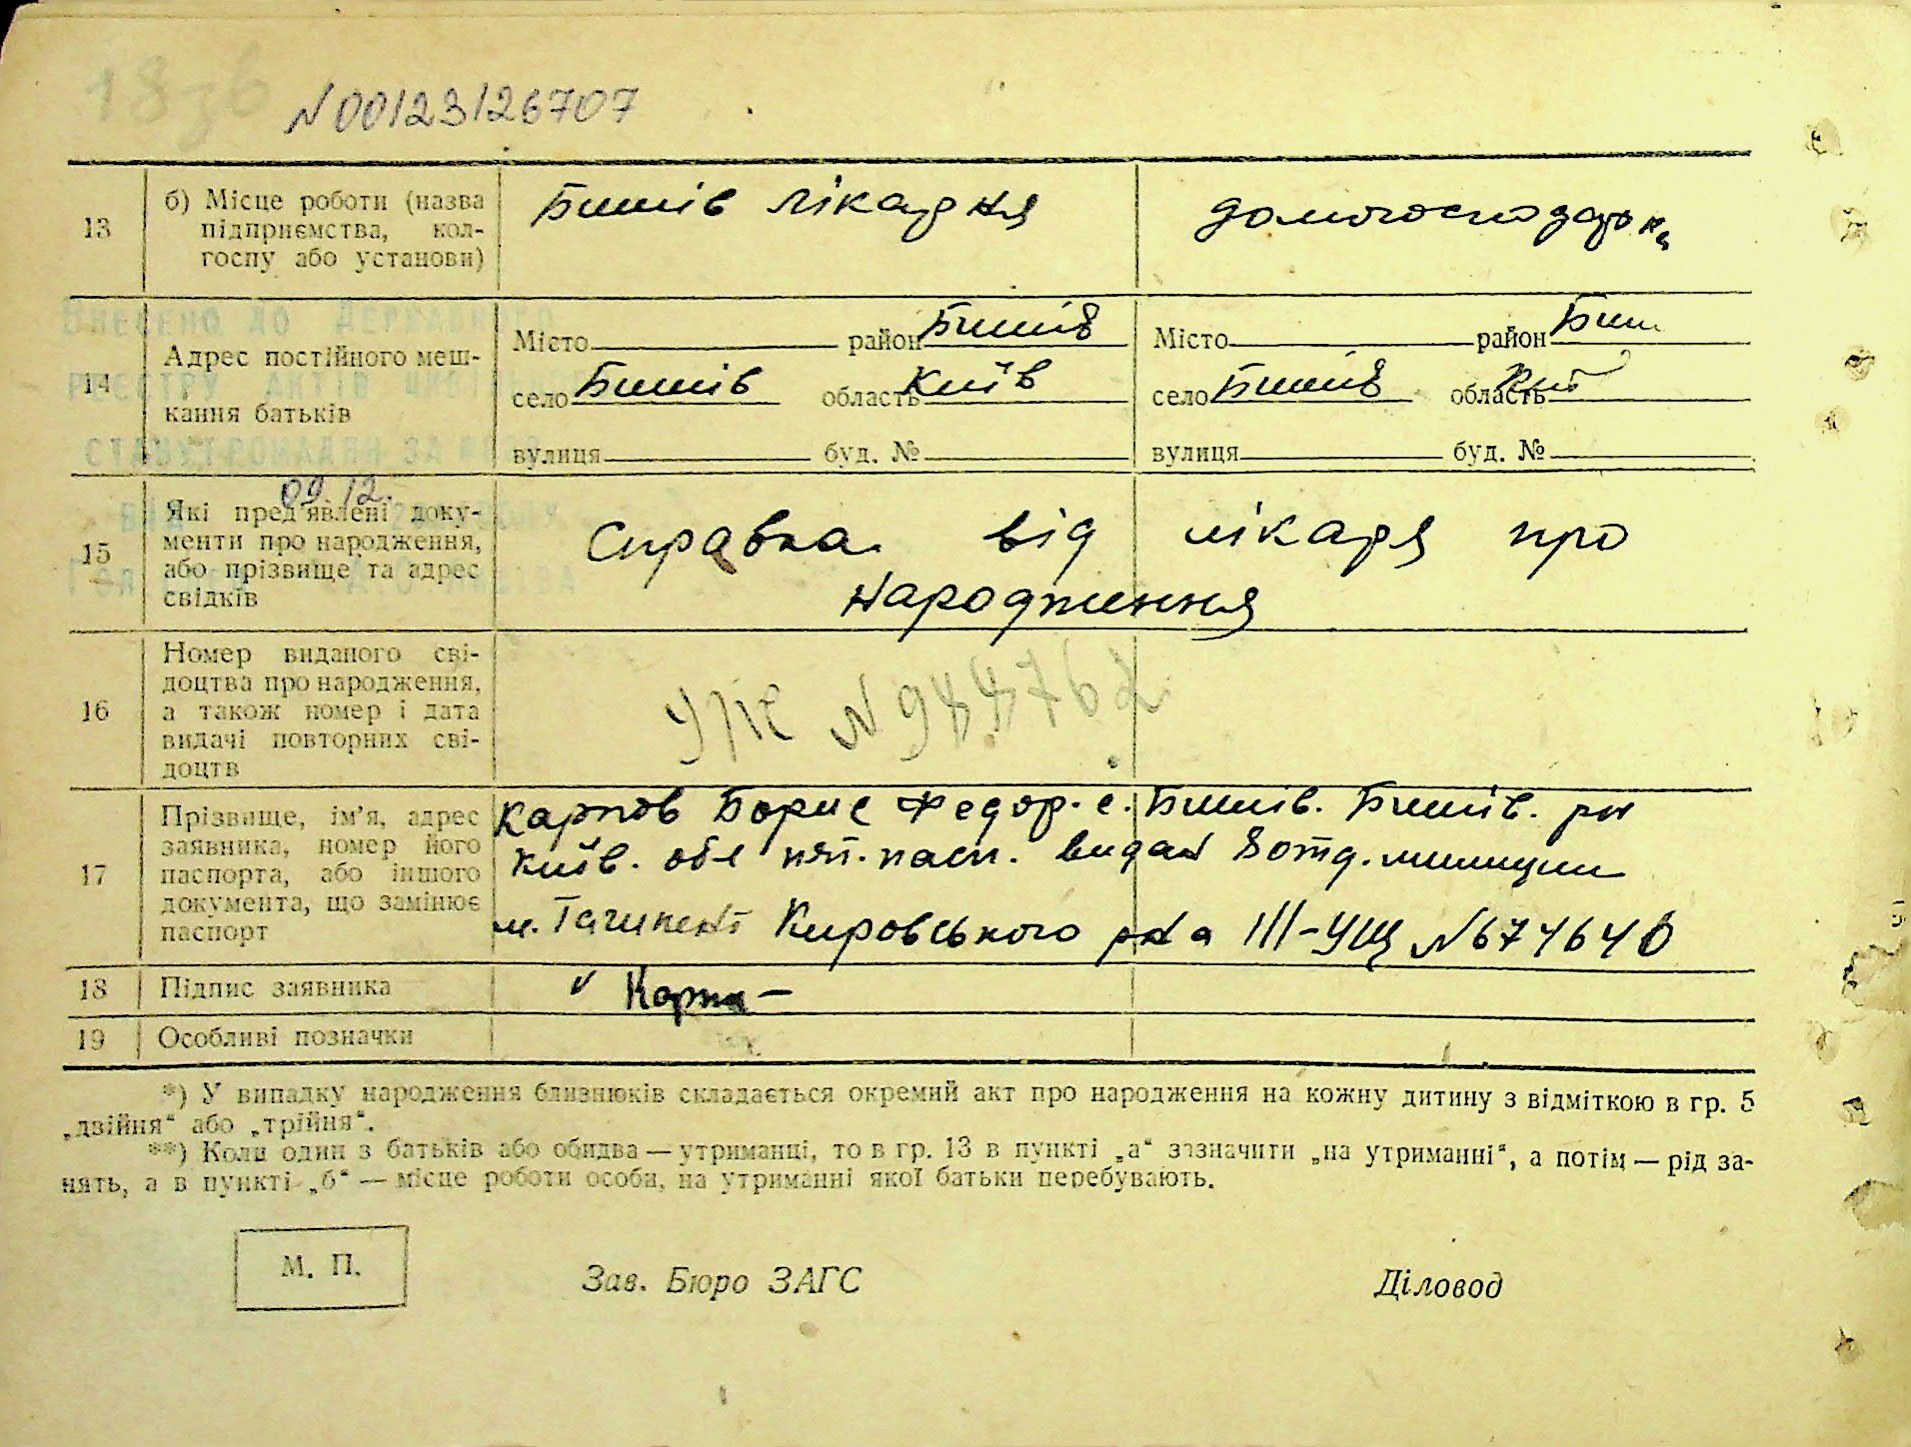 N00123126707
13 б) Місце роботи (назва підприємства, колгоспу або установи) Бишів лікарня домогосподарка
ВНЕСЕНО ДО ДЕРЖАВНОГО
РЕЄСТРУ АКТІВ ЦИВ
СТАНУ ГРОМАДЯН ЗА
14 Адрес постійного меш-
кання батьків
Місто район Бишів Місто район Биш
село Бишів область Київ село Бишів область Киї
вулиця буд. № вулиця буд. №
09.12.
15 Які пред'явлені доку-
менти про народження,
або прізвище та адрес
свідків
Справка від лікаря про
народження
16 Номер виданого сві-
доцтва про народження,
а також номер і дата
видачі повторних сві-
доцтв
УЖ N 944762
17 Прізвище, ім'я, адрес
заявника, номер його
паспорта, або іншого
документа, що замінює
паспорт
Карпов Борис Федор. с. Бишів. Бишів. рн
Київ. обл пят. пасп. видан 8 отд. милиции
м. Ташкент Кировського рна III-УЩ N674640
18 Підпис заявника Карпо
19 Особливі позначки
*) У випадку народження близнюків складається окремий акт про народження на кожну дитину з відміткою в гр. 5
„двійня“ або „трійня“.
**) Коли один з батьків або обидва — утриманці, то в гр. 13 в пункті „а“ зазначити „на утриманні“, а потім — рід за-
нять, а в пункті „б“ — місце роботи особи, на утриманні якої батьки перебувають.
М. П. Зав. Бюро ЗАГС Діловод